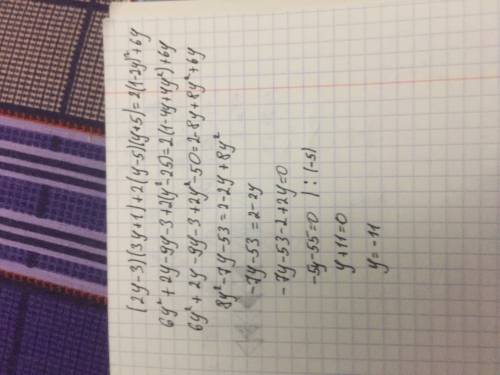 (2y-3)(3y+1)+2(y-5)(y+5)=2(1-2y)²+6y
6y²+2y-9y-3+2(y²-25)=2(1-4y+4y²)+6y
6y²+2y-9y-3+2y²-50=2-8y+8y²+6y
8y²-7y-53=2-2y+8y²
-7y-53=2-2y
-7y-53-2+2y=0
-5y-55=0 | :(-5)
y+11=0
y=-11